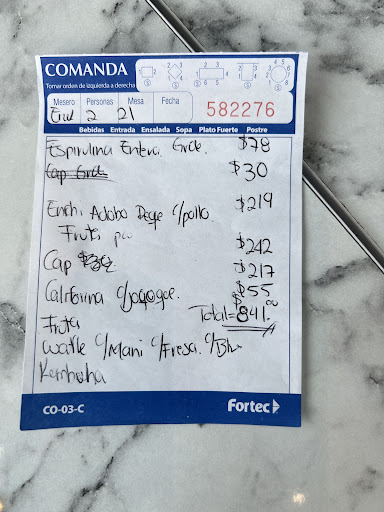 COMANDA
Tomar orden de izquierda a derecha
Mesero Personas Mesa Fecha
2 21 582276
Bebidas Entrada Ensalada Sopa Plato Fuerte Postre
Espirulina Entera Grde. $78
Cap Grde $30
Ench. Adobo c/pollo. $219
Fruti pa
$242
Cap $30
$217
California $55
Total= 841.00
Fruta
Wafle c/Mani c/Fresa. c/Blu
Kombucha
CO-03-C Fortec